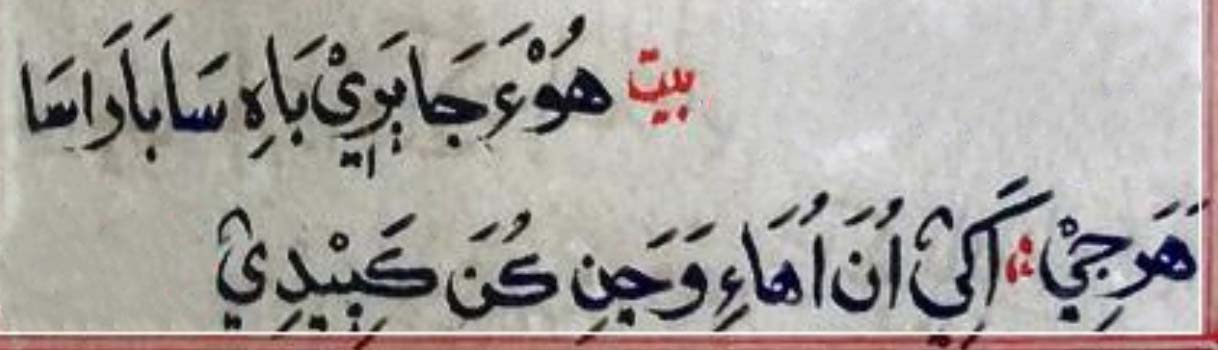 بيت هُوْءَ جَا ٻَرِيْ بَاهِ سَا بَارَاسَا
هَرَجِيْ ؛ آكِيْ اُنَ اُهَاءِ وَجَنِ كُنَ كَٻِيْدِيْ